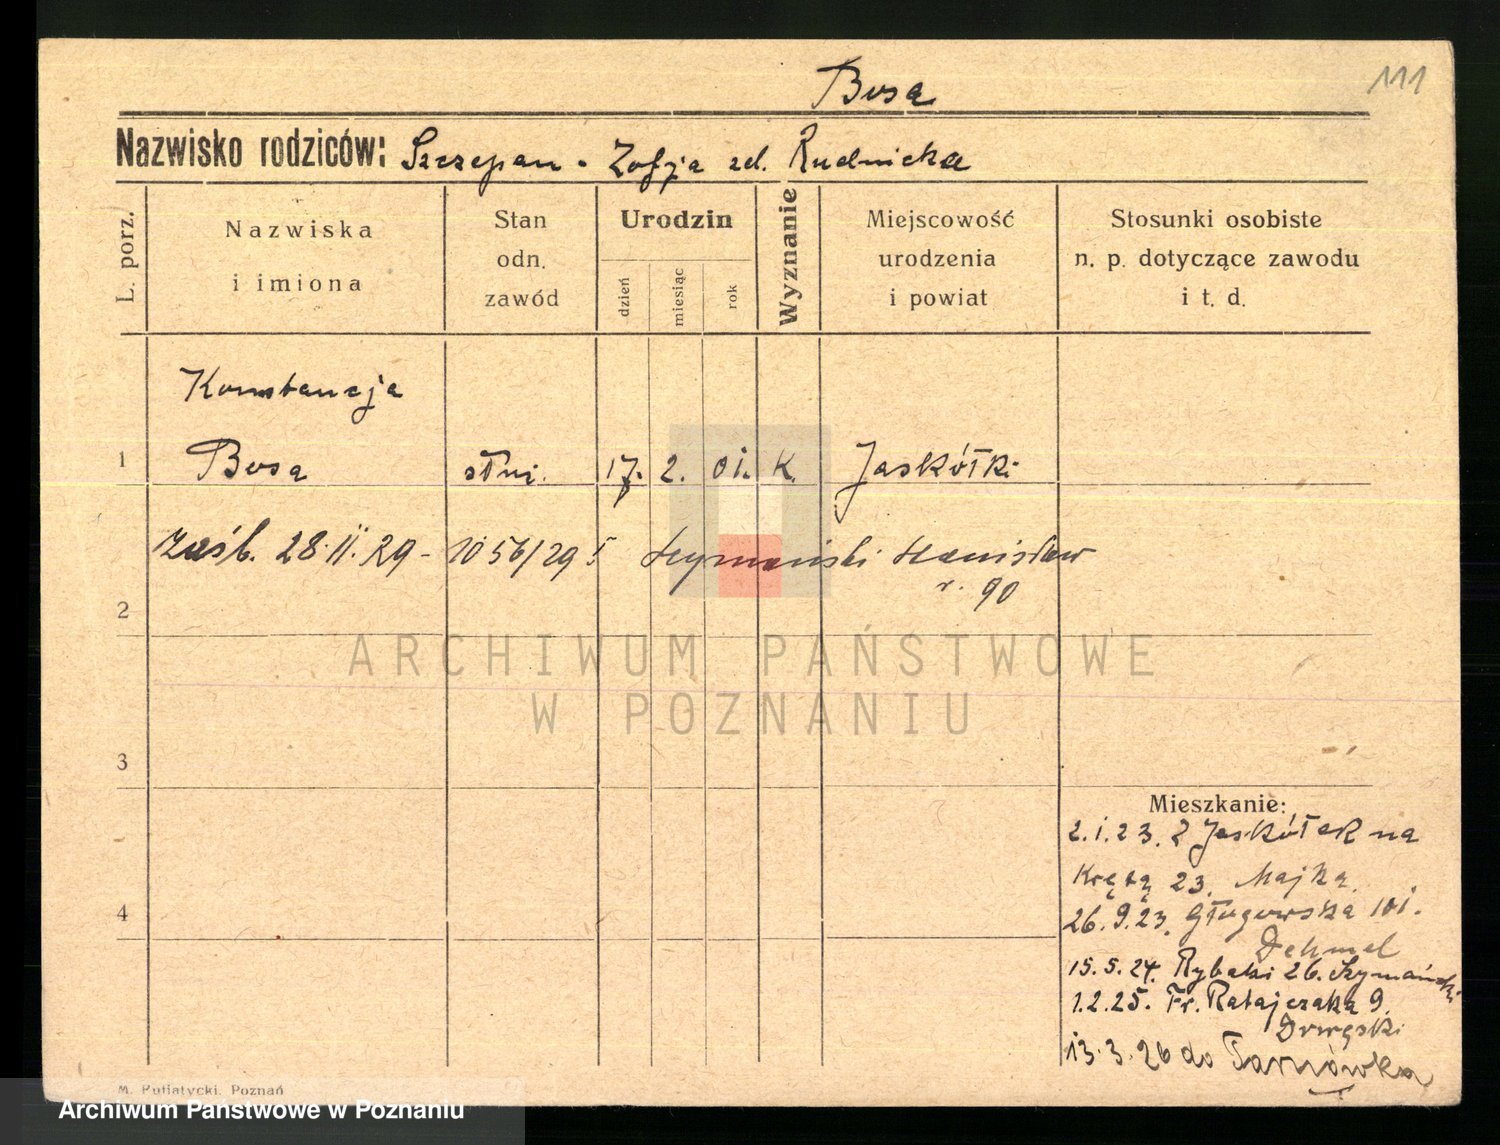 111
Bosa
Nazwisko rodziców: Szczepan - Zofja zd. Rudnicka
L. porz.
Nazwiska i imiona
Stan odn. zawód
Urodzin
dzień
miesiąc
rok
Wyznanie
Miejscowość urodzenia i powiat
Stosunki osobiste n. p. dotyczące zawodu i t. d.
Konstancja
1 Bosa służ. 17. 2. 01. K. Jaskółki
zaśb. 28.II.29 - 1056/29 Szymański Stanisław
r. 90
2
3
4
Mieszkanie:
2.1.23. Z Jaskółek na
Krętą 23. Majka.
26.9.23. Głogowska 101.
Dehmel
15.5.24. Rybaki 26. Szymański
1.2.25. Fr. Ratajczaka 9.
13.3.26 do Tarnówka
M. Putiatycki, Poznań
ARCHIWUM PAŃSTWOWE
W POZNANIU
Archiwum Państwowe w Poznaniu